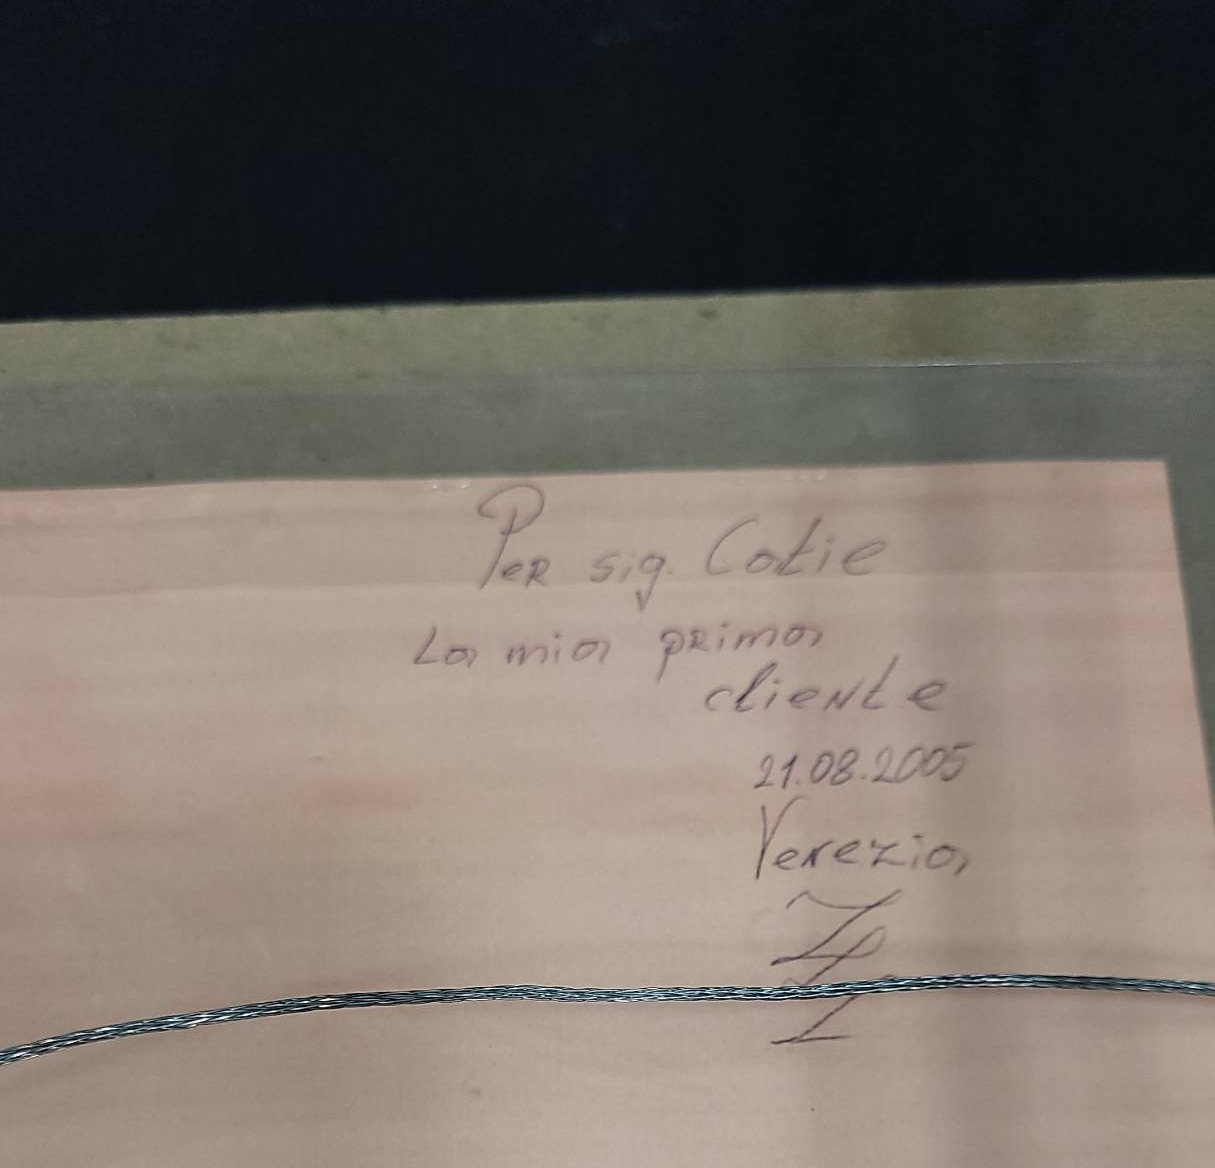 Per sig. Catie
La mia prima
cliente
21.08.2005
Venezia